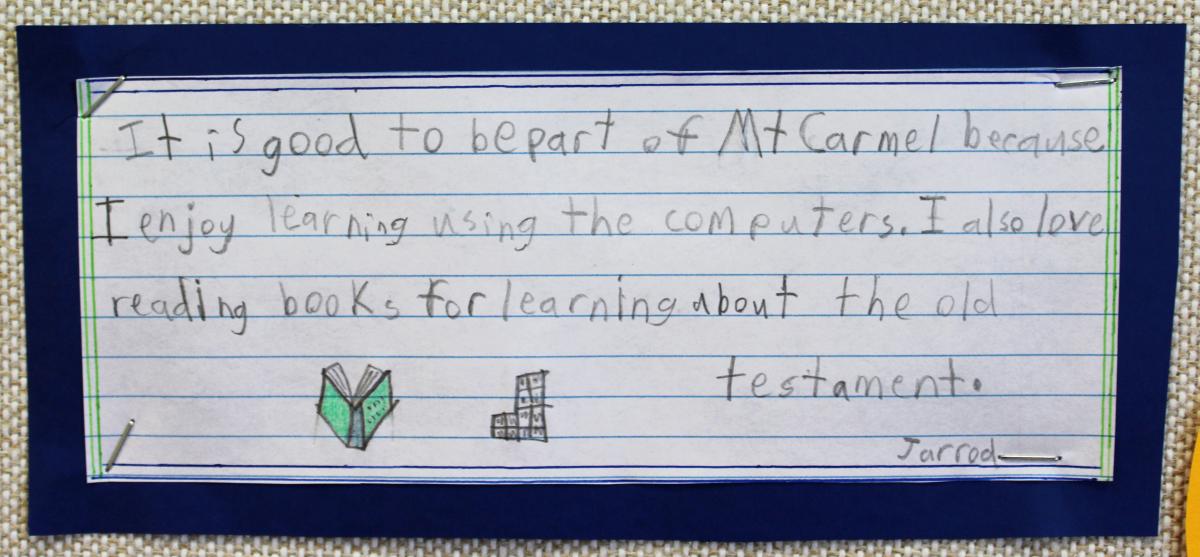 It is good to be part of Mt Carmel because
I enjoy learning using the computers. I also love
reading books for learning about the old
testament.
Jarrod